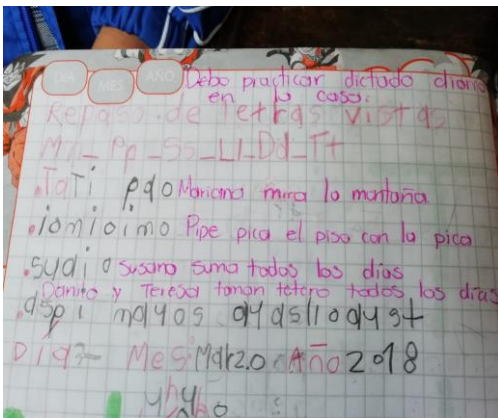 DIA MES AÑO Debo practicar dictado diario
en la casa.
Repaso de letras vistas
Mm - Pp - Ss - Ll - Dd - Tt
.TaTi pdo Mariana mira la montaña
.iomioimo Pipe pica el piso con la pica
.sudia susana suma todos los dias
Danito y Teresa toman tetero todos los dias
DIa MeS Marzo Año 2018